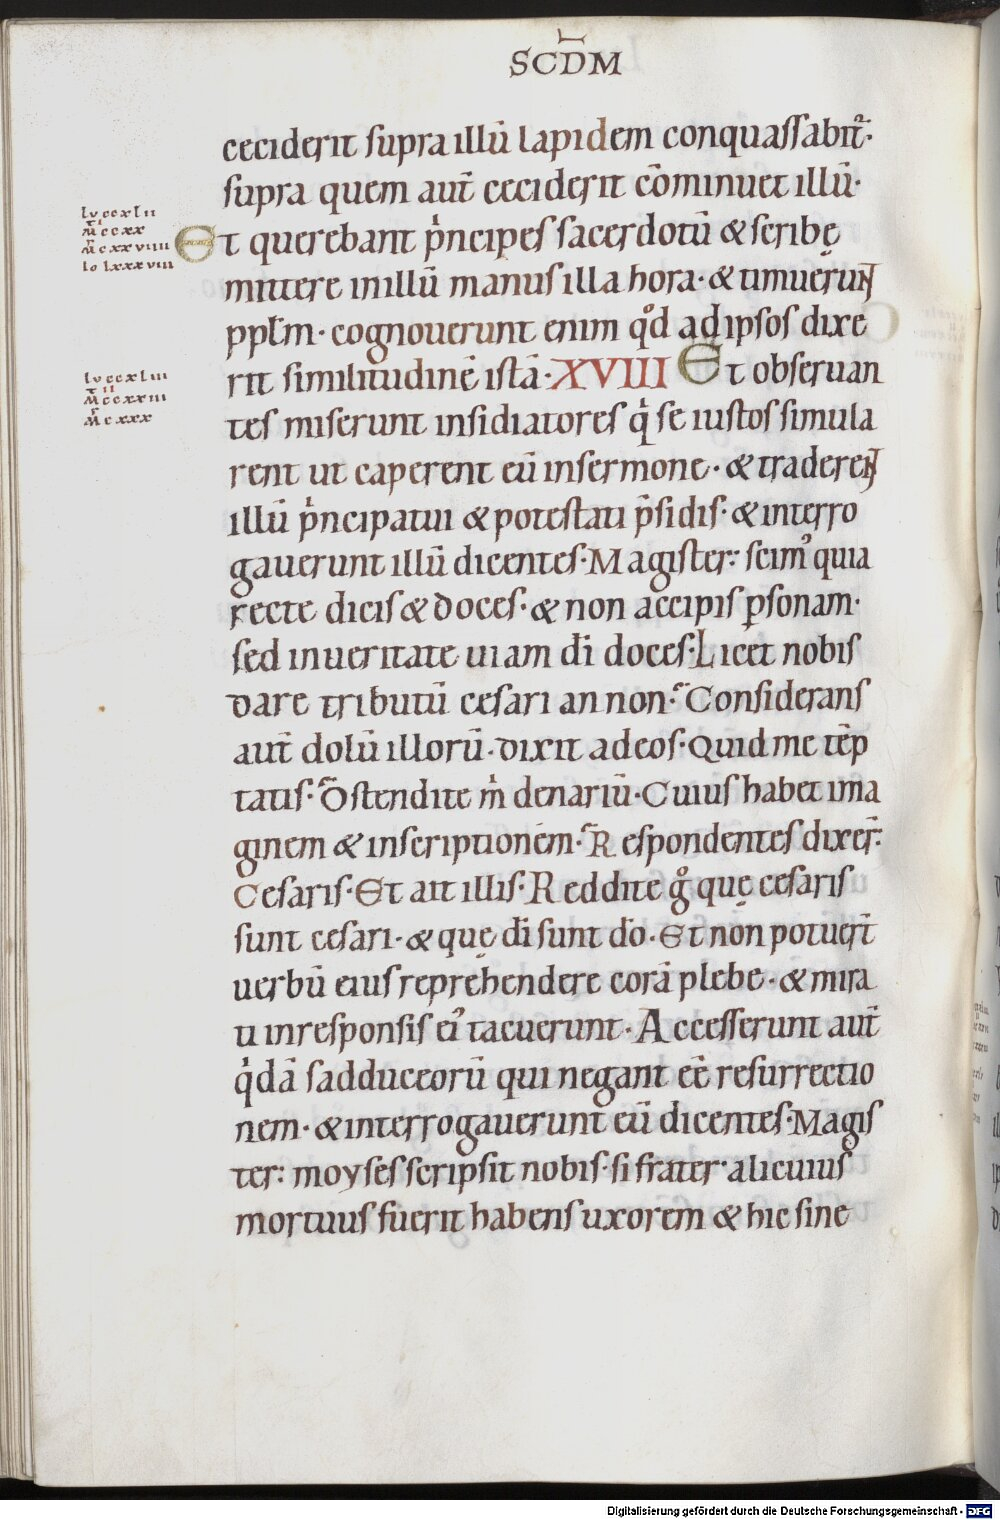 SCD̄M
ceciderit supra illū lapidem conquassabit᷑·
supra quem aut̄ ceciderit cōminuet illū·
lv ccxlii
m̄ ccxx
m̄ cxxviiii
Io lxxxviii
Et querebant pͥncipes sacerdotū & scribę
mittere in illū manus illa hora· & timuerunt
ppl̄m· cognouerunt enim qͦd ad ipsos dixe
rit similitudinē istā· XVIII Et obseruan
lv ccxliii
m̄ ccxxiii
m̄ cxxx
tes miserunt insidiatores qͥ se iustos simula
rent ut caperent eū in sermone· & traderent
illū pͥncipatui & potestati p̄sidis· & interro
gauerunt illū dicentes· Magister: scimꝰ quia
recte dicis & doces· & non accipis ꝑsonam·
sed in ueritate uiam dī doces· Licet nobis
dare tributū cesari an non· Considerans
aut̄ dolū illorū· dixit ad eos· Quid me tēp
tatis· Ostendite mͥ denariū· Cuius habet ima
ginem & inscriptionem· Respondentes dixer̄·
Cesaris· Et ait illis· Reddite gͦ quę cesaris
sunt cesari· & quę dī sunt dō· Et non potuer̄t
uerbū eius reprehendere corā plebe· & mira
ti in responsis eiꝰ tacuerunt· Accesserunt aut̄
qͥdā sadduceorū qui negant eē resurrectio
nem· & interrogauerunt eū dicentes· Magis
ter: moyses scripsit nobis· si frater alicuius
mortuus fuerit habens uxorem & hic sine
Digitalisierung gefördert durch die Deutsche Forschungsgemeinschaft - DFG